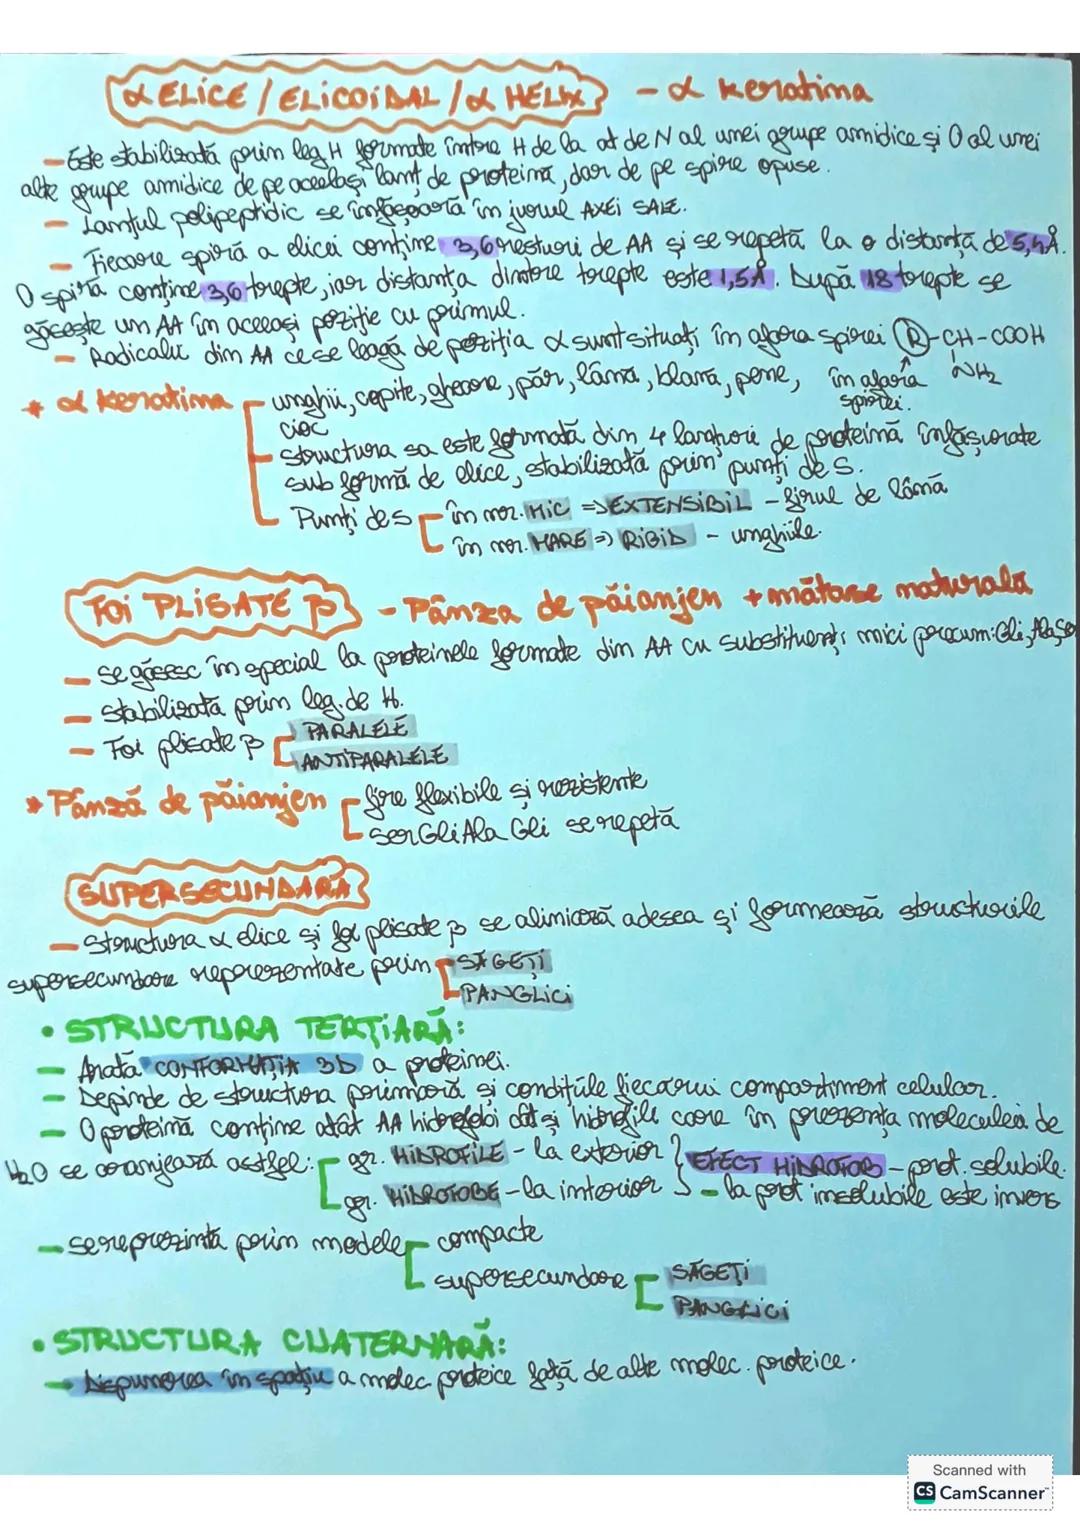 α ELICE / ELICOIDAL / α HELIX - α keratina
- Este stabilizată prin leg H formate între H de la at de N al unei grupe amidice și O al unei
alte grupe amidice de pe același lanț de proteină, dar de pe spire opuse.
- Lanțul polipeptidic se înfășoară în jurul AXEI SALE.
- Fiecare spiră a elicei conține 3,6 resturi de AA și se repetă la o distanță de 5,4Å.
O spiră conține 3,6 trepte, iar distanța dintre trepte este 1,5Å. După 18 trepte se
găsește un AA în aceeași poziție cu primul.
- Radicalii din AA ce se leagă de poziția α sunt situați în afara spirei R-CH-COOH
NH2
în afara
spirei.
* α keratina
unghii, copite, gheare, păr, lâna, blana, pene,
cioc
structura sa este formată din 4 lanțuri de proteină înfășurate
sub formă de elice, stabilizată prin punți de S.
Punți de S
în nr. MIC => EXTENSIBIL - firul de lână
în nr. MARE => RIGID - unghiile.
FOI PLISATE β - Pânza de păianjen + mătase naturală
- se găsesc în special la proteinele formate din AA cu substituenți mici precum: Gli, Ala, Ser
- stabilizată prin leg. de H.
- Foi plisate β
PARALELE
ANTIPARALELE
* Pânză de păianjen
fire flexibile și rezistente
Ser Gli Ala Gli se repetă
SUPERSECUNDARĂ
- Structura α elice și foi plisate β se aliniază adesea și formează structurile
supersecundare reprezentate prin
SĂGEȚI
PANGLICI
• STRUCTURA TERȚIARĂ:
- Arată CONFORMAȚIA 3D a proteinei.
- Depinde de structura primară și condițiile fiecărui compartiment celular.
- O proteină conține atât AA hidrofobi cât și hidrofili care în prezența moleculei de
H2O se aranjează astfel:
gr. HIDROFILE - la exterior
gr. HIDROFOBE - la interior
EFECT HIDROFOB - prot. solubile.
- la prot insolubile este invers
- se reprezintă prin modele
compacte
supersecundare
SĂGEȚI
PANGLICI
• STRUCTURA CUATERNARĂ:
- Dispunerea în spațiu a molec proteice față de alte molec. proteice.
Scanned with
CS CamScanner™